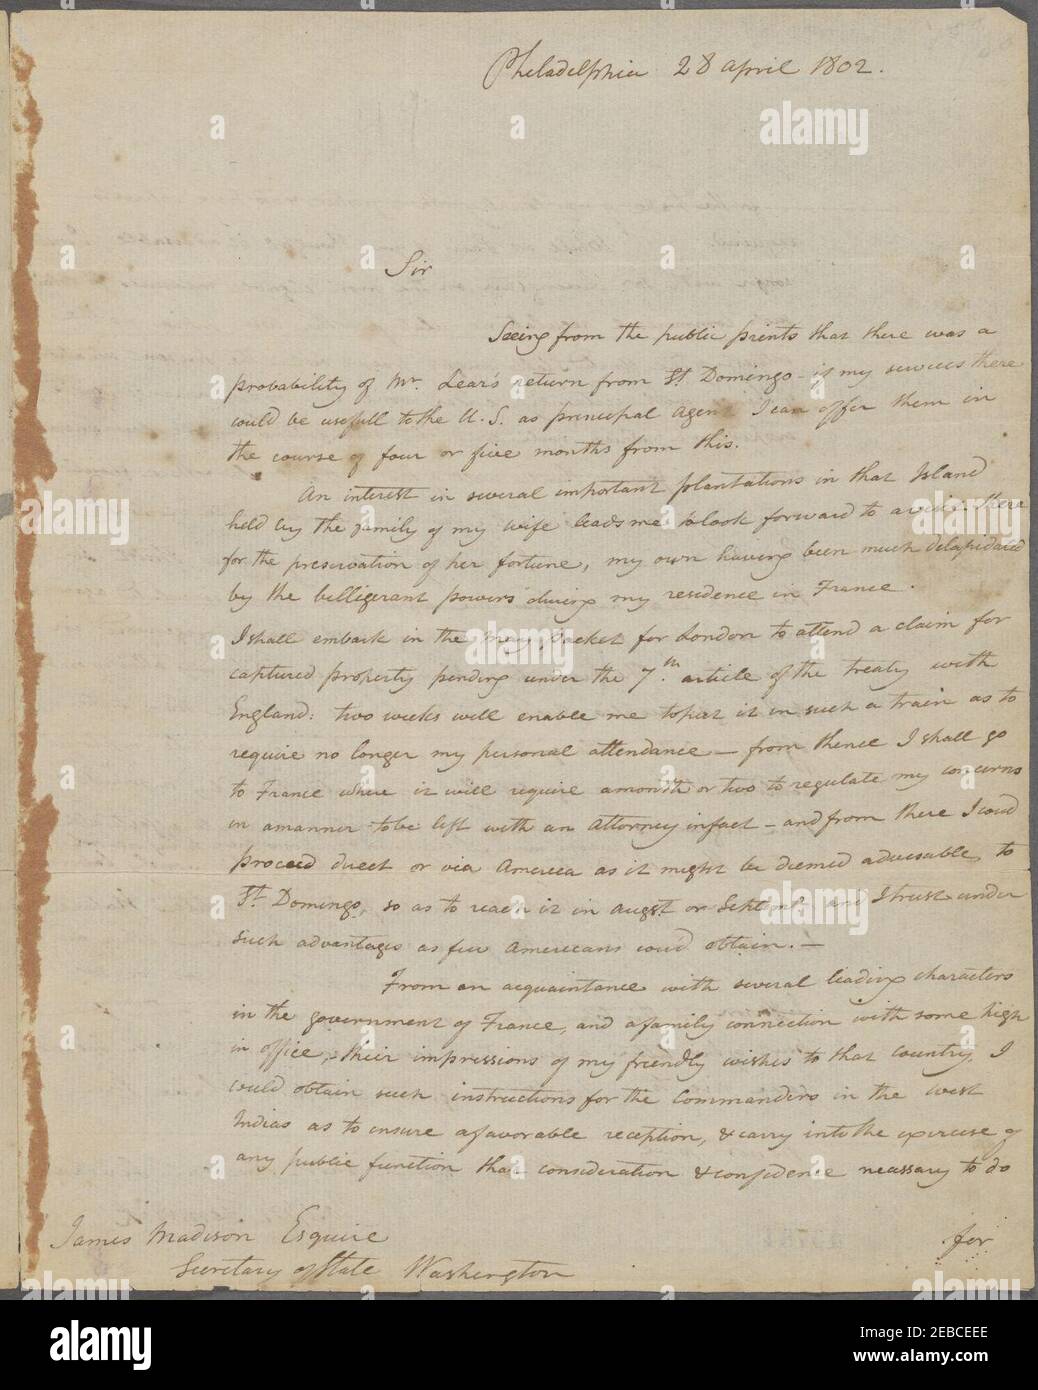 Philadelphia 28 April 1802.
Sir
Seeing from the public prints that there was a
probability of Mr. Lear's return from St. Domingo - if my services there
could be usefull to the U.S. as principal Agent I can offer them in
the course of four or five months from this.
An interest in several important plantations in that Island
held by the family of my wife leads me to look forward to a visit there
for the preservation of her fortune, my own having been much delapidated
by the belligerant powers during my residence in France.
I shall embark in the May packet for London to attend a claim for
captured property pending under the 7th. article of the treaty with
England: two weeks will enable me to put it in such a train as to
require no longer my personal attendance — from thence I shall go
to France where it will require a month or two to regulate my concerns
in a manner to be left with an Attorney in fact - and from there I coud
proceed direct or via America as it might be deemed adviseable, to
St. Domingo, so as to reach it in Augst or Septemr and I trust under
such advantages as few Americans coud obtain. —
From an acquaintance with several leading characters
in the government of France, and a family connection with some high
in office, & their impressions of my friendly wishes to that Country, I
could obtain such instructions for the Commanders in the West
Indias as to ensure a favorable reception, & carry into the exercise of
any public function that consideration & confidence necessary to do
for
James Madison Esquire
Secretary of State Washington
alamy
a
alamy
Image ID: 2EBCEEE
www.alamy.com